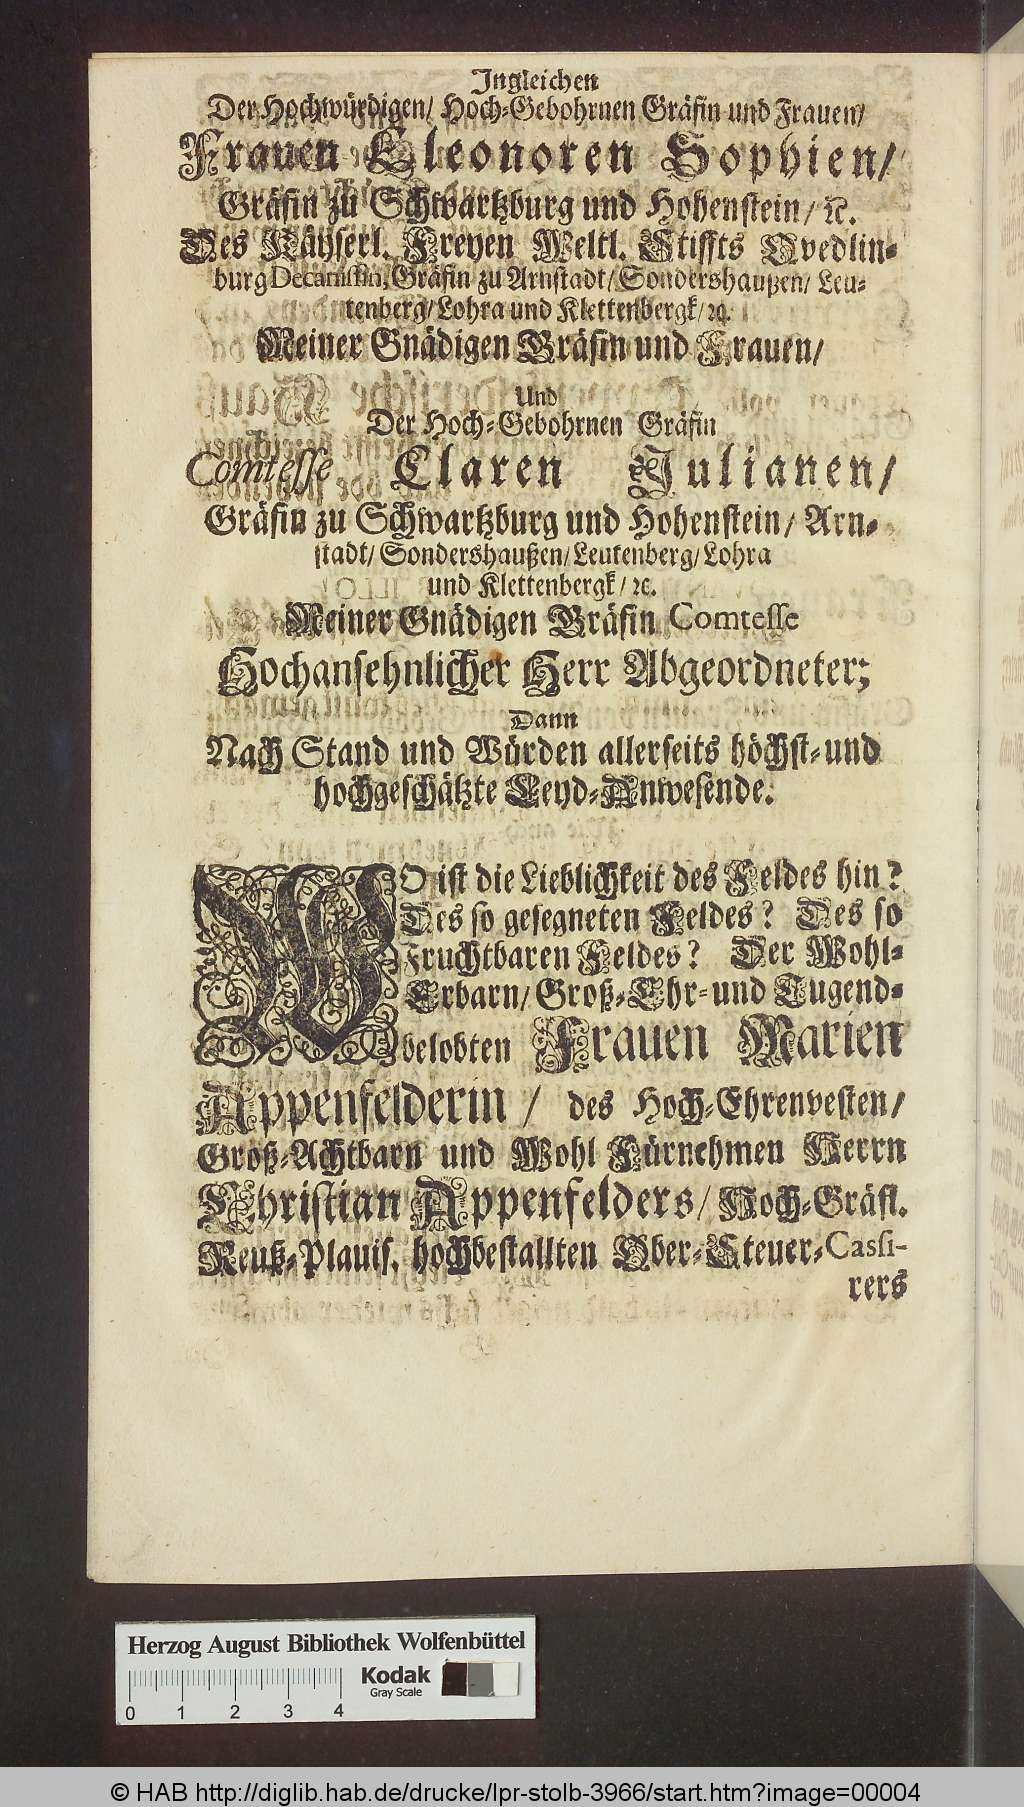 Ingleichen
Der Hochwürdigen/ Hoch-Gebohrnen Gräfin und Frauen/
Frauen Eleonoren Sophien/
Gräfin zu Schwartzburg und Hohenstein/ ꝛc.
Des Käyserl. Freyen Weltl. Stiffts Qvedlin-
burg Decanissin, Gräfin zu Arnstadt/ Sondershaußen/ Leu-
tenberg/ Lohra und Klettenbergk/ ꝛc.
Meiner Gnädigen Gräfin und Frauen/
Und
Der Hoch-Gebohrnen Gräfin
Comtesse Claren Julianen/
Gräfin zu Schwartzburg und Hohenstein/ Arn-
stadt/ Sondershaußen/ Leutenberg/ Lohra
und Klettenbergk/ ꝛc.
Meiner Gnädigen Gräfin Comtesse
Hochansehnlicher Herr Abgeordneter;
Dann
Nach Stand und Würden allerseits höchst- und
hochgeschätzte Leyd-Anwesende.
WO ist die Lieblichkeit des Feldes hin?
Des so gesegneten Feldes? Des so
Fruchtbaren Feldes? Der Wohl-
Erbarn/ Groß-Ehr- und Tugend-
belobten Frauen Marien
Appenfelderin/ des Hoch-Ehrenvesten/
Groß-Achtbarn und Wohl Fürnehmen Herrn
Christian Appenfelders/ Hoch-Gräfl.
Reuß-Plauis. hochbestallten Ober-Steuer-Cassi-
rers
Herzog August Bibliothek Wolfenbüttel
Kodak
Gray Scale
0 1 2 3 4
© HAB http://diglib.hab.de/drucke/lpr-stolb-3966/start.htm?image=00004